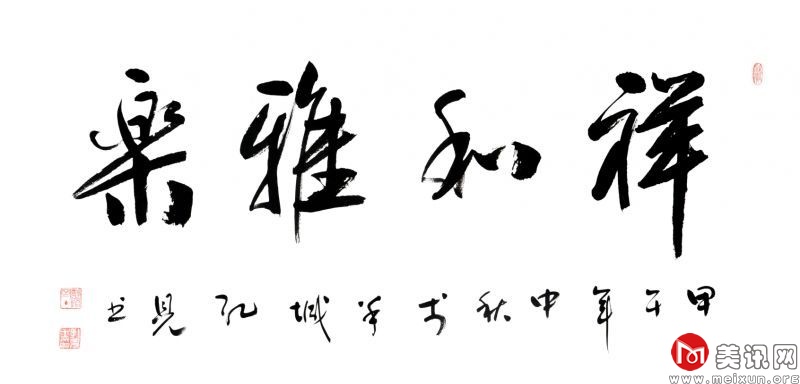 祥和雅樂
甲午年中秋于羊城孔見书
美讯网
www.meixun.org